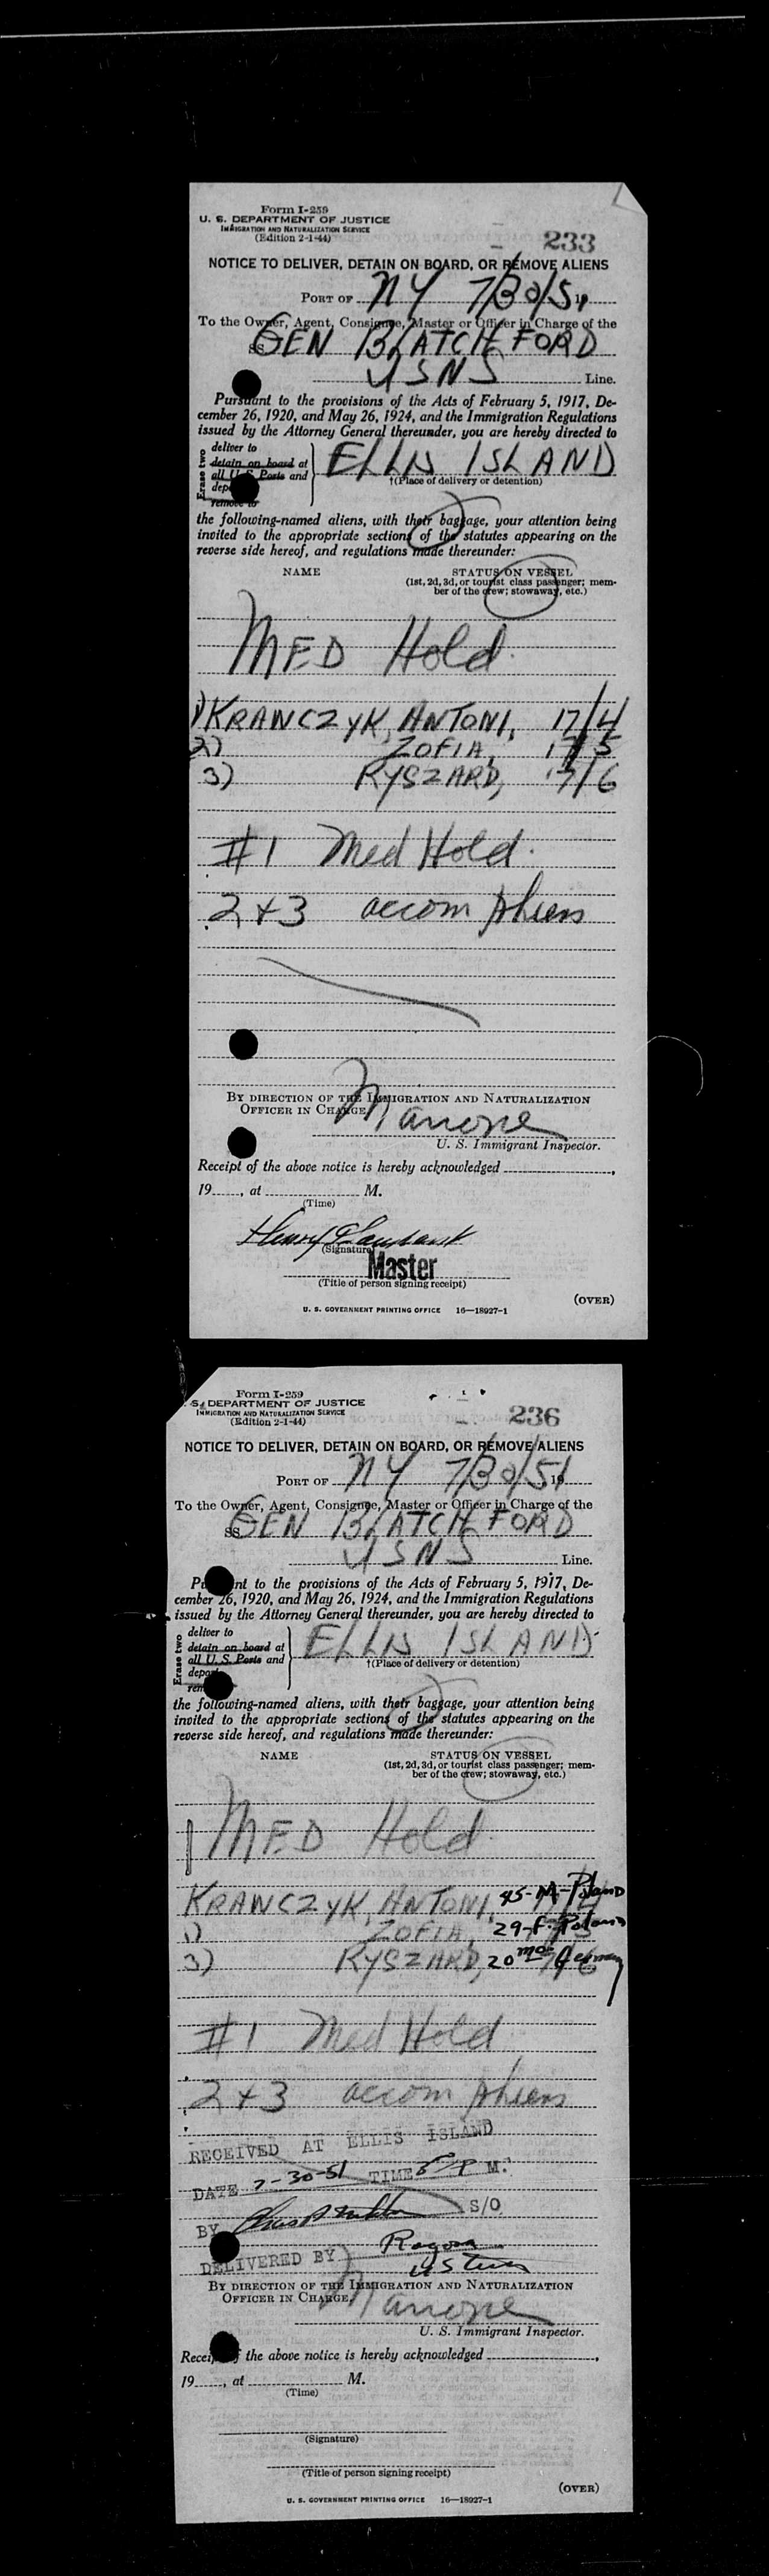 Form I-259
U. S. DEPARTMENT OF JUSTICE
IMMIGRATION AND NATURALIZATION SERVICE
(Edition 2-1-44)
233
NOTICE TO DELIVER, DETAIN ON BOARD, OR REMOVE ALIENS
PORT OF NY 7/30/51 19
To the Owner, Agent, Consignee, Master or Officer in Charge of the
SS GEN BLATCHFORD
USNS Line.
Pursuant to the provisions of the Acts of February 5, 1917, De-
cember 26, 1920, and May 26, 1924, and the Immigration Regulations
issued by the Attorney General thereunder, you are hereby directed to
Erase two
deliver to
detain on board at
all U.S. Ports and
remove to
ELLIS ISLAND
†(Place of delivery or detention)
the following-named aliens, with their baggage, your attention being
invited to the appropriate sections of the statutes appearing on the
reverse side hereof, and regulations made thereunder:
NAME STATUS ON VESSEL
(1st, 2d, 3d, or tourist class passenger; mem-
ber of the crew; stowaway, etc.)
MED Hold
1) KRAWCZYK, ANTONI, 17/4
2) ZOFIA, 17/5
3) RYSZARD, 17/6
#1 Med Hold
2+3 accom aliens
BY DIRECTION OF THE IMMIGRATION AND NATURALIZATION
OFFICER IN CHARGE
Manone
U. S. Immigrant Inspector.
Receipt of the above notice is hereby acknowledged ,
19 , at M.
(Time)
Henry
(Signature)
Master
(Title of person signing receipt)
(OVER)
U. S. GOVERNMENT PRINTING OFFICE 16—18927-1
Form I-259
S. DEPARTMENT OF JUSTICE
IMMIGRATION AND NATURALIZATION SERVICE
(Edition 2-1-44)
236
NOTICE TO DELIVER, DETAIN ON BOARD, OR REMOVE ALIENS
PORT OF NY 7/30/51 19
To the Owner, Agent, Consignee, Master or Officer in Charge of the
SS GEN BLATCHFORD
USNS Line.
nt to the provisions of the Acts of February 5, 1917, De-
cember 26, 1920, and May 26, 1924, and the Immigration Regulations
issued by the Attorney General thereunder, you are hereby directed to
Erase two
deliver to
detain on board at
all U.S. Ports and
ELLIS ISLAND
†(Place of delivery or detention)
the following-named aliens, with their baggage, your attention being
invited to the appropriate sections of the statutes appearing on the
reverse side hereof, and regulations made thereunder:
NAME STATUS ON VESSEL
(1st, 2d, 3d, or tourist class passenger; mem-
ber of the crew; stowaway, etc.)
MED Hold
KRAWCZYK, ANTONI, 45-M-Poland
ZOFIA, 29-F-Poland
3) RYSZARD, 20 mos Germany
#1 Med Hold
2+3 accom aliens
RECEIVED AT ELLIS ISLAND
DATE 7-30-51 TIME 5 P M.
BY S/O
DELIVERED BY
BY DIRECTION OF THE IMMIGRATION AND NATURALIZATION
OFFICER IN CHARGE
Manone
U. S. Immigrant Inspector.
the above notice is hereby acknowledged ,
19 , at M.
(Time)
(Signature)
(Title of person signing receipt)
(OVER)
U. S. GOVERNMENT PRINTING OFFICE 16—18927-1